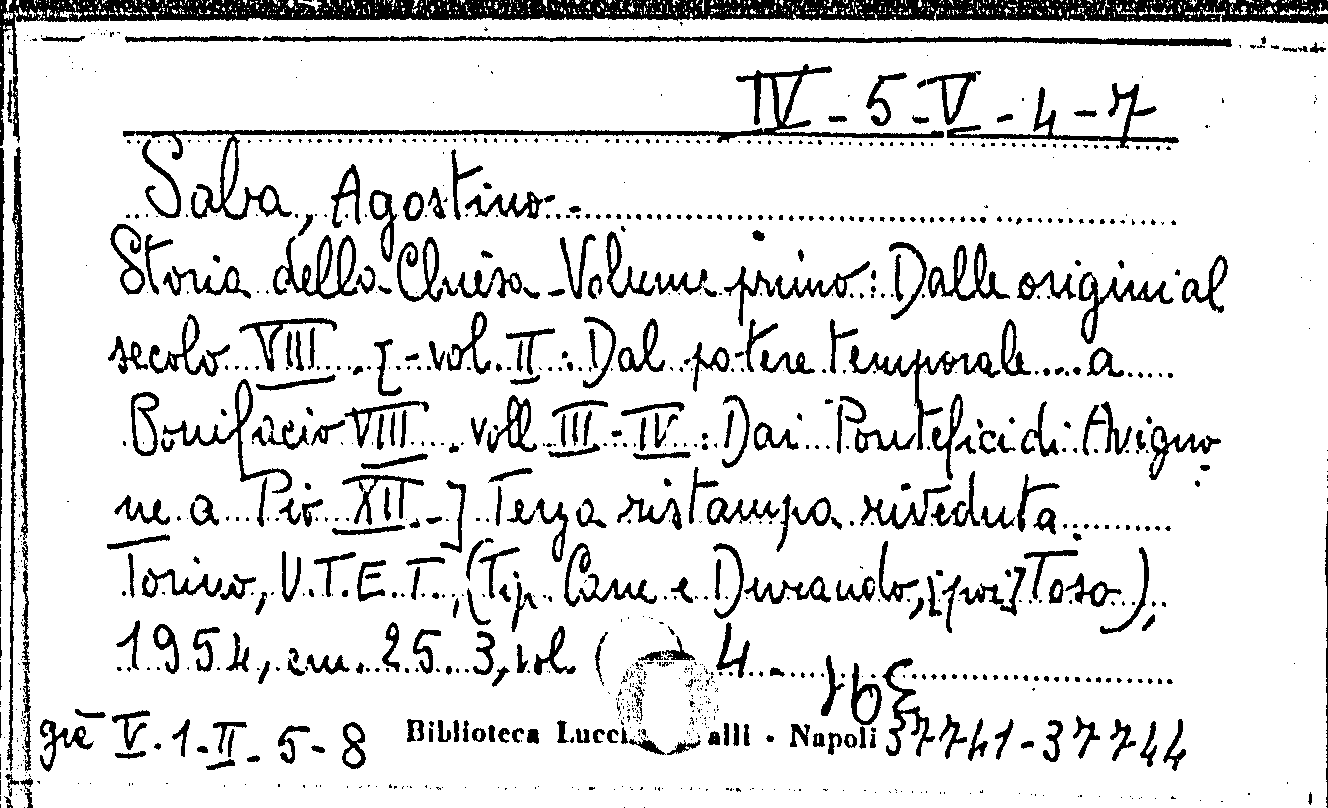 IV-5-V-4-7
Saba, Agostino.
Storia della Chiesa - Volume primo: Dalle origini al
secolo VIII. [-vol. II: Dal potere temporale....a
Bonifacio VIII. voll III-IV: Dai Pontefici di Avigno
ne a Pio XII.-] Terza ristampa riveduta.
Torino, U.T.E.T., (Tip. Cane e Durando, [poi] Toso),
1954, cm. 25.3, vol. ( 4.
già V.1-II-5-8 Biblioteca Lucch alli - Napoli 37741-37744